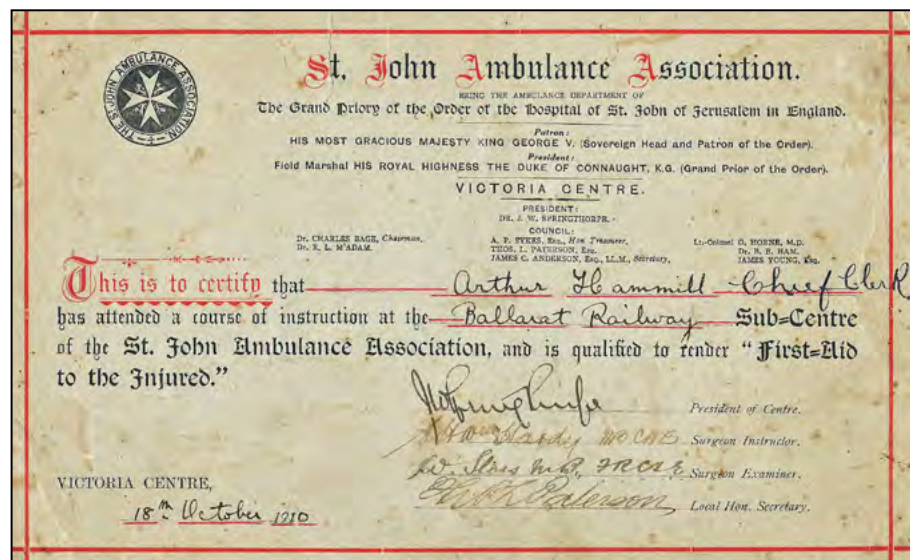 THE ST. JOHN AMBULANCE ASSOCIATION.
St. John Ambulance Association.
BEING THE AMBULANCE DEPARTMENT OF
The Grand Priory of the Order of the Hospital of St. John of Jerusalem in England.
Patron:
HIS MOST GRACIOUS MAJESTY KING GEORGE V. (Sovereign Head and Patron of the Order).
President:
Field Marshal HIS ROYAL HIGHNESS THE DUKE OF CONNAUGHT, K.G. (Grand Prior of the Order).
VICTORIA CENTRE.
PRESIDENT:
DR. J. W. SPRINGTHORPE.
COUNCIL:
Dr. CHARLES BAGE, Chairman, A. F. SYKES, Esq., Hon Treasurer, Lt.-Colonel G. HORNE, M.D.
Dr. R. L. M'ADAM. THOS. L. PATERSON, Esq. Dr. B. B. HAM.
JAMES C. ANDERSON, Esq., LL.M., Secretary, JAMES YOUNG, Esq.
This is to certify that Arthur Hammill Chief Clerk
has attended a course of instruction at the Ballarat Railway Sub=Centre
of the St. John Ambulance Association, and is qualified to render "First=Aid
to the Injured."
President of Centre.
Hardy Surgeon Instructor.
W. Surgeon Examiner.
Paterson Local Hon. Secretary.
VICTORIA CENTRE,
18th October 1910